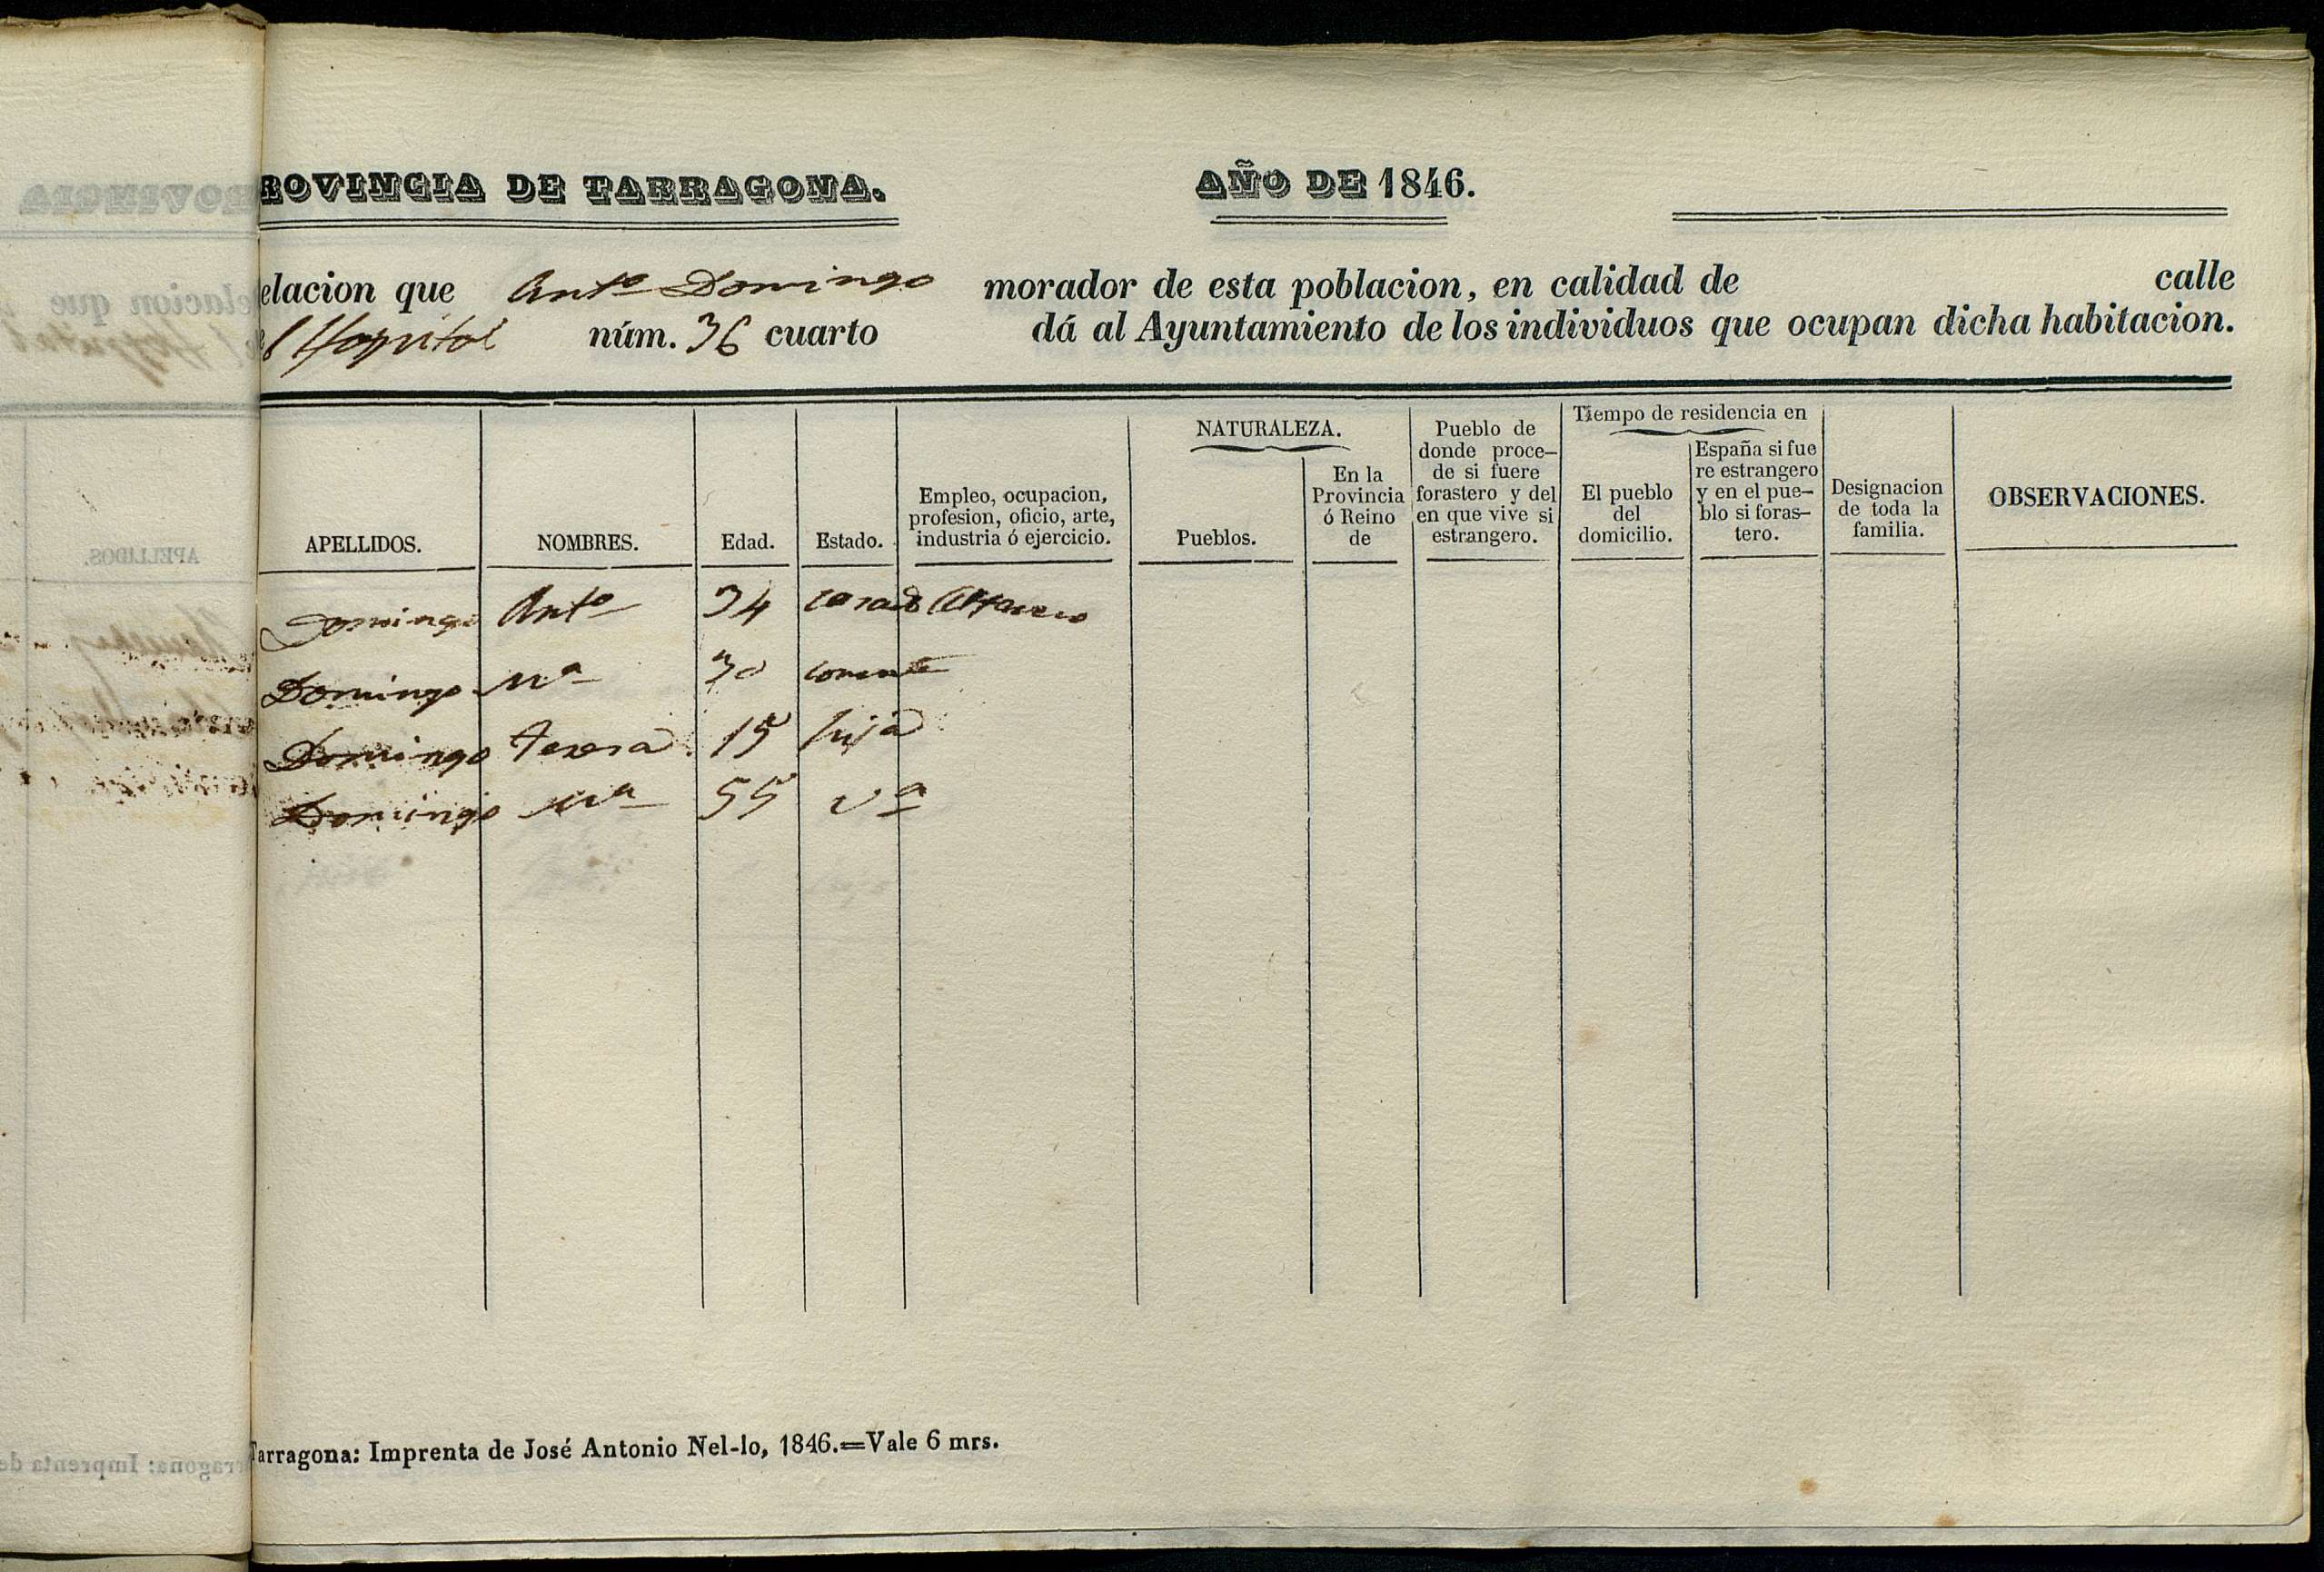 ROVINCIA DE TARRAGONA. AÑO DE 1846.
elacion que Ant.º Domingo morador de esta poblacion, en calidad de calle
el Hospital núm. 36 cuarto dá al Ayuntamiento de los individuos que ocupan dicha habitacion.
APELLIDOS.
NOMBRES.
Edad.
Estado.
Empleo, ocupacion,
profesion, oficio, arte,
industria ó ejercicio.
NATURALEZA.
Pueblos.
En la
Provincia
ó Reino
de
Pueblo de
donde proce-
de si fuere
forastero y del
en que vive si
estrangero.
Tiempo de residencia en
El pueblo
del
domicilio.
España si fue
re estrangero
y en el pue-
blo si foras-
tero.
Designacion
de toda la
familia.
OBSERVACIONES.
Domingo Ant.º 34 casado
Domingo M.ª 30
Domingo Teresa 15 hija
Domingo M.ª 55 v.ª
Tarragona: Imprenta de José Antonio Nel-lo, 1846.=Vale 6 mrs.